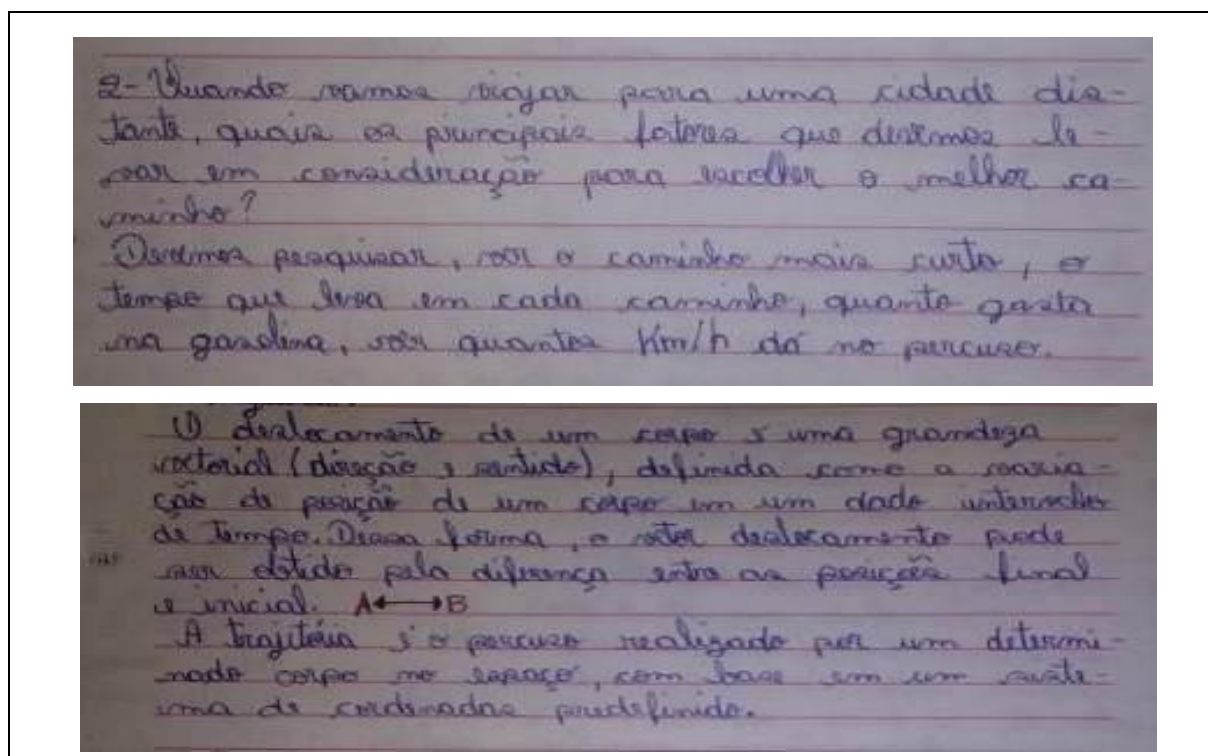 2- Quando vamos viajar para uma cidade dis-
tante, quais os principais fatores que devemos le-
var em consideração para escolher o melhor ca-
minho?
Devemos pesquisar, ver o caminho mais curto, o
tempo que leva em cada caminho, quanto gasta
na gasolina, ver quantos Km/h dá no percurso.
O deslocamento de um corpo é uma grandeza
vectorial (direção e sentido), definida como a varia-
ção de posição de um corpo em um dado intervalo
de tempo. Dessa forma, o vetor deslocamento pode
ser obtido pela diferença entre as posições final
e inicial. A ↔ B
A trajetória é o percurso realizado por um determi-
nado corpo no espaço, com base em um siste-
ma de cordenadas predefinido.